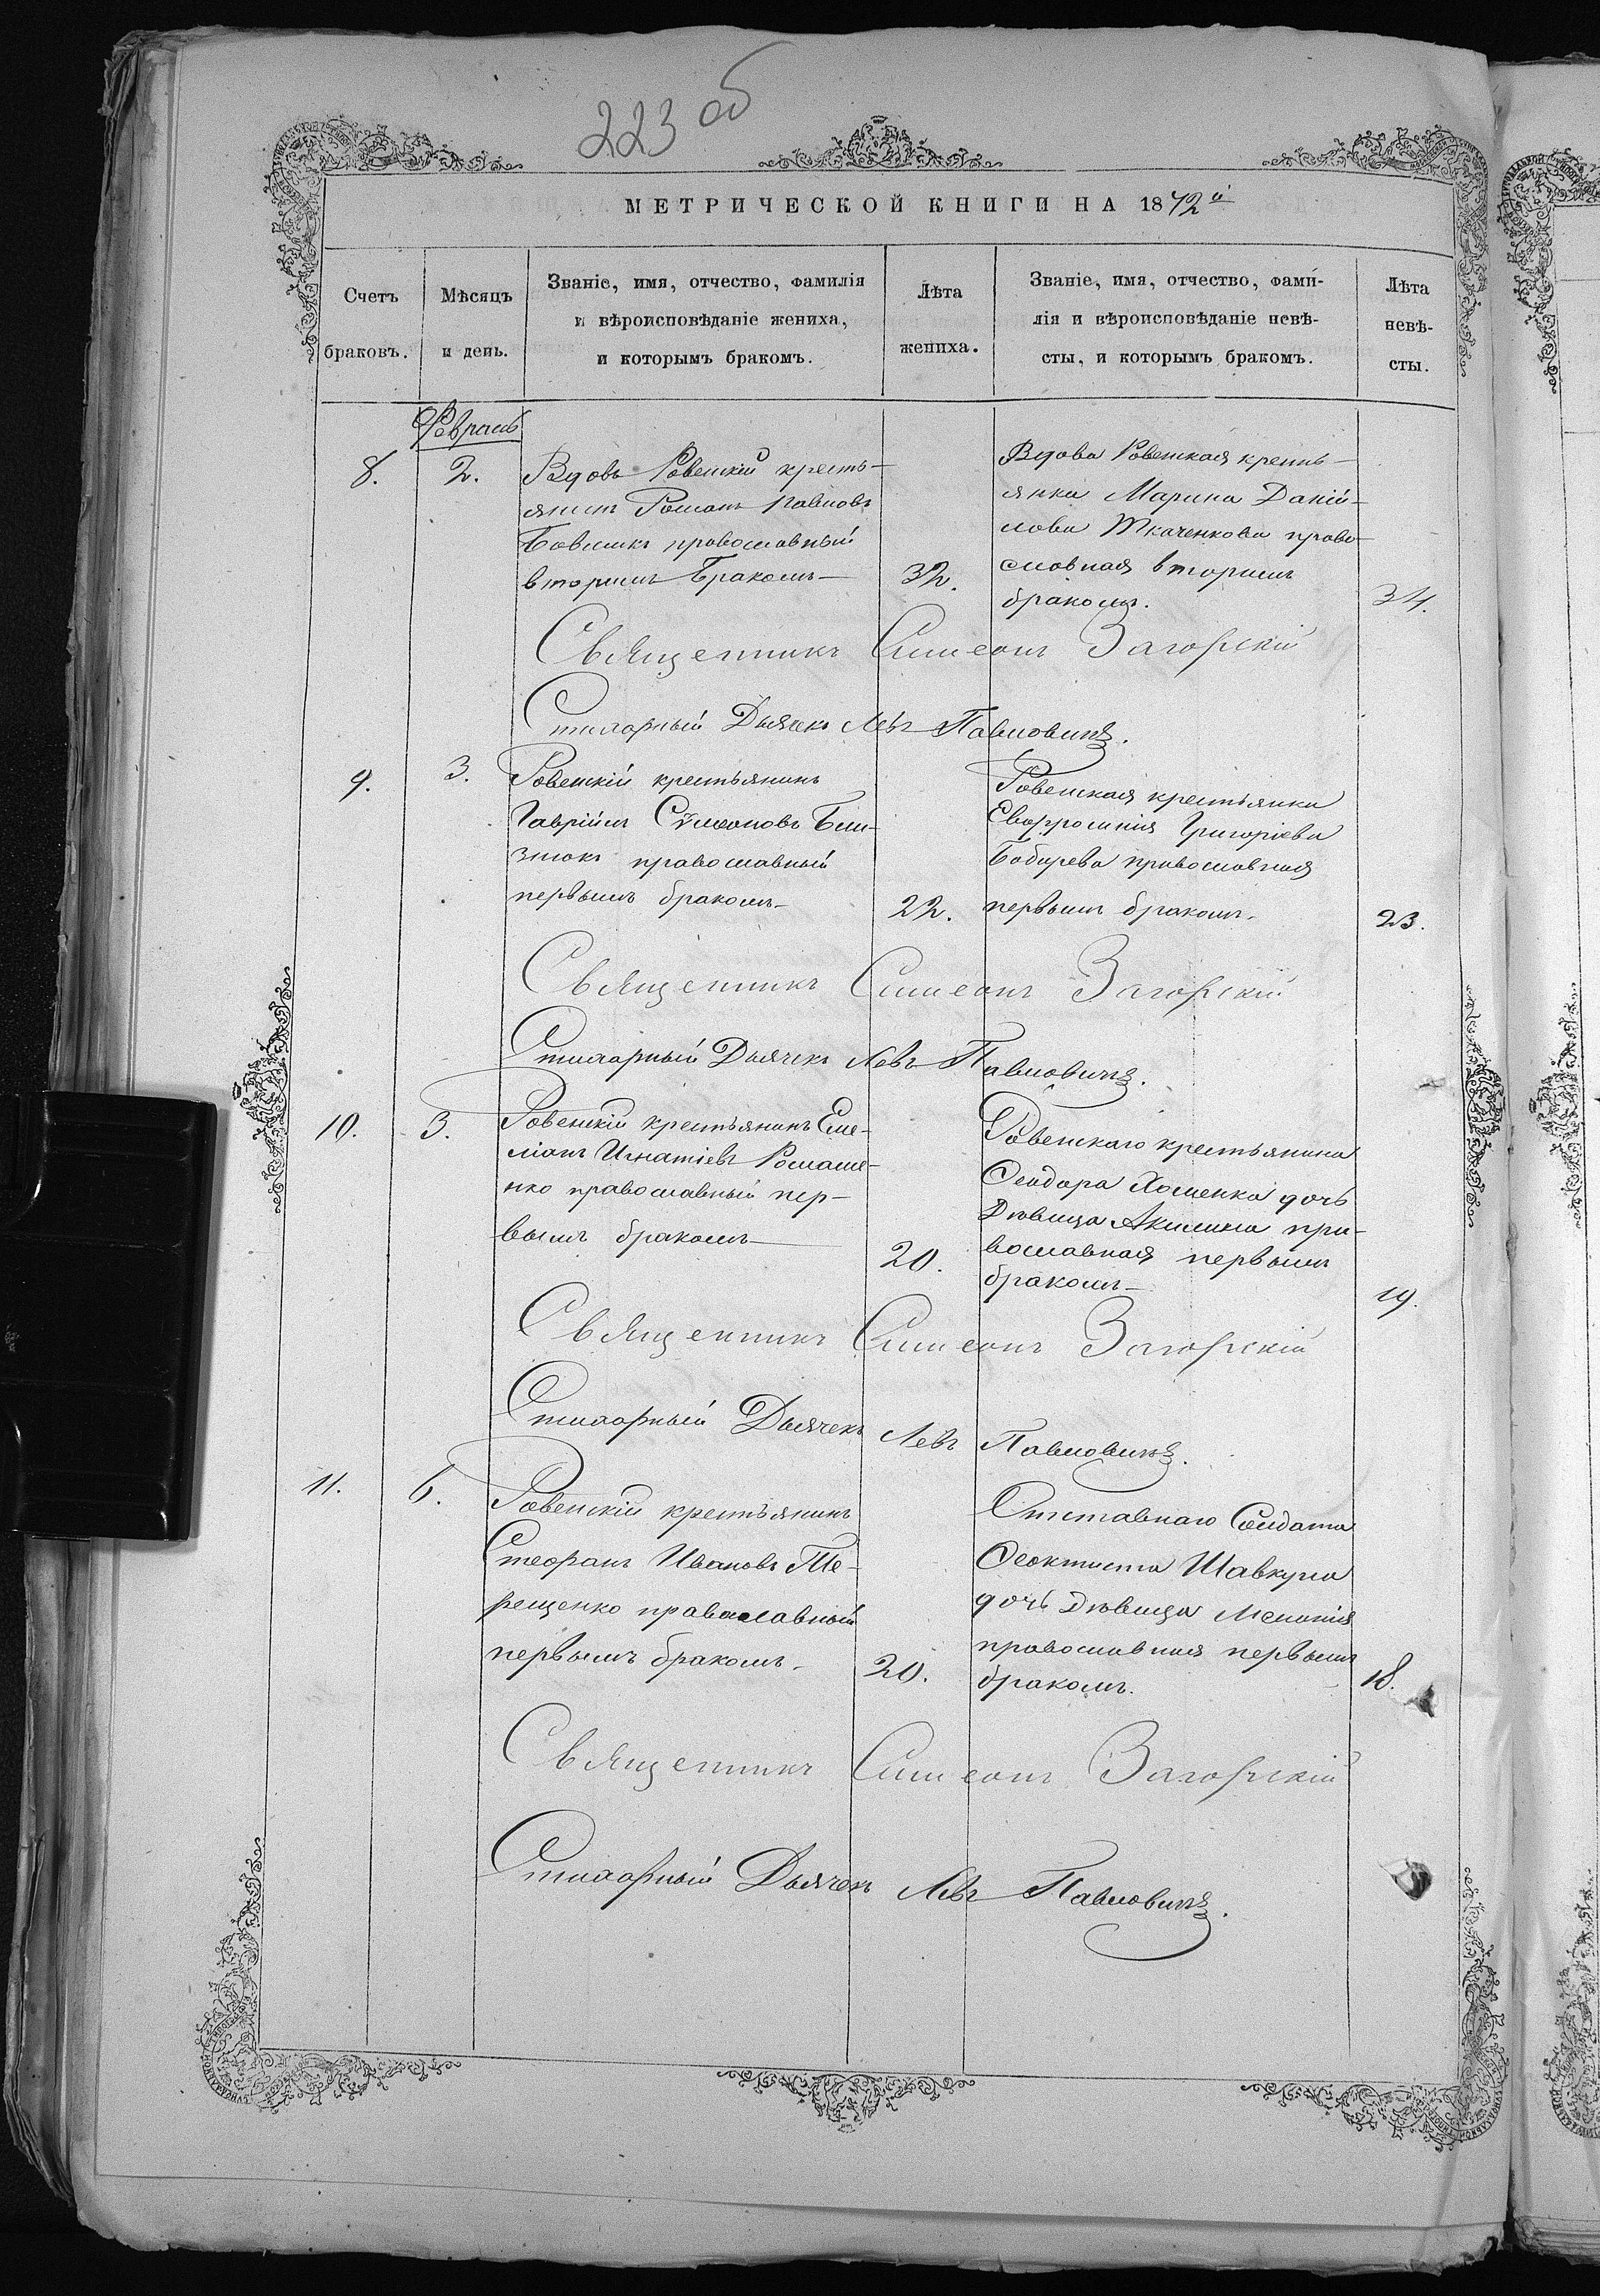 223 об
МЕТРИЧЕСКОЙ КНИГИ НА 1872й
Счетъ браковъ.
Мѣсяцъ и день.
Званіе, имя, отчество, фамилія
и вѣроисповѣданіе жениха,
и которымъ бракомъ.
Лѣта жениха.
Званіе, имя, отчество, фами-
лія и вѣроисповѣданіе невѣ-
сты, и которымъ бракомъ.
Лѣта невѣ-
сты.
Февраль
8.
2.
Вдовъ Ровенскій кресть-
янинъ Романъ Павловъ
православный
вторымъ бракомъ
32.
Вдова Ровенская кресть-
янка Марина Даніи-
лова Ткаченкова право-
славная вторымъ
бракомъ.
34.
Священникъ Симеонъ Загорскій
Стихарный Дьячекъ Левъ Павловичъ.
9.
3.
Ровенскій крестьянинъ
Гавріилъ Сѵмеоновъ Близ-
нюкъ православный
первымъ бракомъ
22.
Ровенская крестьянка
Евфросинія Григоріева
Бобырева православная
первымъ бракомъ.
23.
Священникъ Симеонъ Загорскій
Стихарный Дьячекъ Левъ Павловичъ.
10.
3.
Ровенскій крестьянинъ Еме-
ліанъ Игнатіевъ Ромаше-
нко православный пер-
вымъ бракомъ
20.
Ровенскаго крестьянина
Феодора Хоменка дочь
Дѣвица Акилина пра-
вославная первымъ
бракомъ
19.
Священникъ Симеонъ Загорскій
Стихарный Дьячекъ Левъ Павловичъ.
11.
6.
Ровенскій крестьянинъ
Стефанъ Ивановъ Те-
рещенко православный
первымъ бракомъ
20.
Отставнаго Солдата
Феоктиста Шавкуна
дочь Дѣвица
православная первымъ
бракомъ.
18.
Священникъ Симеонъ Загорскій
Стихарный Дьячекъ Левъ Павловичъ.